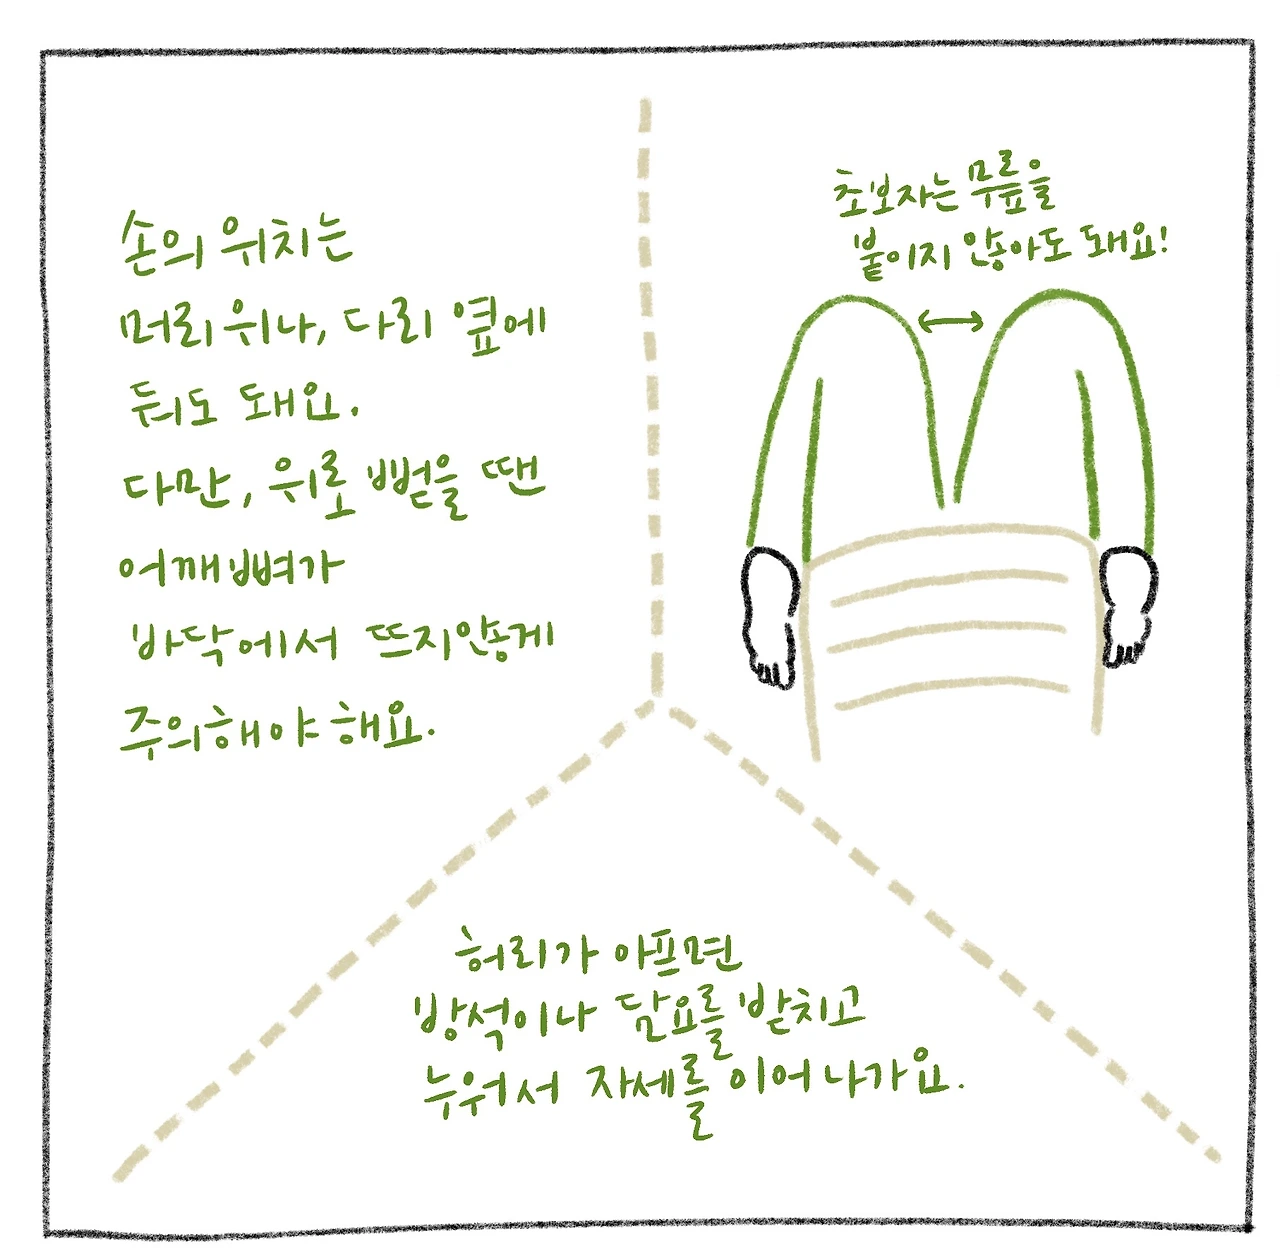 손의 위치는
머리 위나, 다리 옆에
둬도 돼요.
다만, 위로 뻗을 땐
어깨뼈가
바닥에서 뜨지 않게
주의해야 해요.
초보자는 무릎을
붙이지 않아도 돼요!
허리가 아프면
방석이나 담요를 받치고
누워서 자세를 이어나가요.